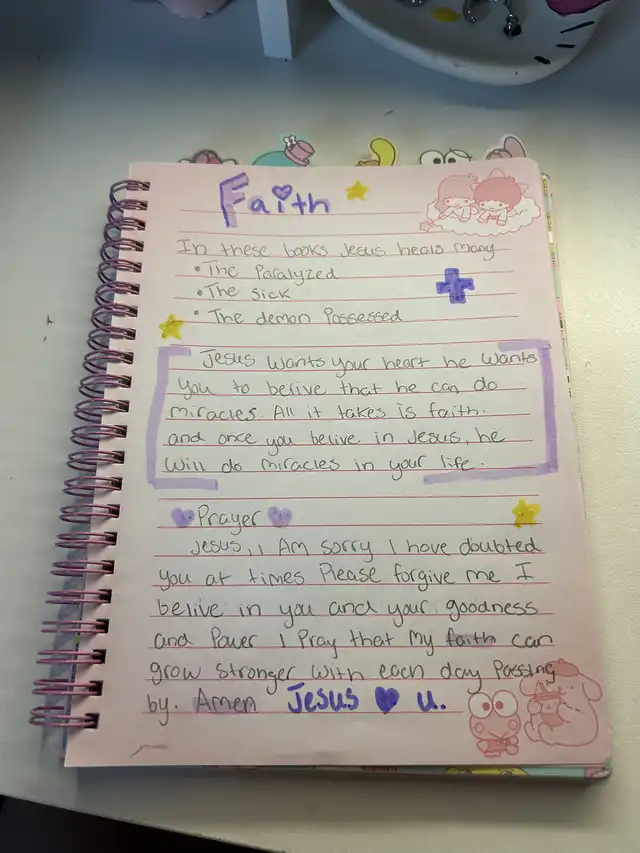 Faith
In these books Jesus heals many
• The Paralyzed
• The Sick
• The demon Possessed
Jesus wants your heart he wants
you to belive that he can do
miracles. All it takes is faith.
and once you belive in Jesus, he
will do miracles in your life.
Prayer
Jesus, I Am sorry I have doubted
you at times Please forgive me I
belive in you and your goodness
and Power I Pray that my faith can
grow stronger with each day Passing
by. Amen Jesus ♥ u.